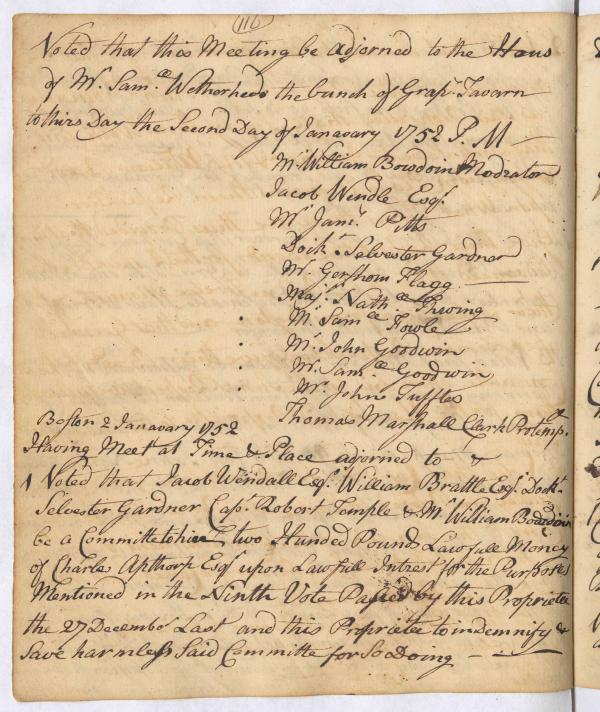 116
Voted that this Meeting be Adjorned to the Hous
of Mr. Samll. Wetherhead the bunch of Grap. Tavarn
to thirs Day the Second Day of Janavary 1752 P.M —
Mr. William Bowdoin Modrator
Jacob Wendle Esqr.
Mr. Jams. Pitts
Dockr. Selvester Gardner
Mr. Gershom Flagg —
Majr. Nathll. Thwing
Mr. Samll. Fowle
Mr. John Goodwin
Mr. Samll. Goodwin
Mr. John Tufftes
Thomas Marshall Clark Protemp.
Boston 2 Janavary 1752
Having Meet at Time & Place adjorned to &
1 Voted that Jacob Wendall Esqr. William Brattle Esqr. Dockr.
Selvester Gardner Capt. Robert Temple & Mr. William Bowdoin
be a Committe to hier two Hunded Pounds Lawfull Money
of Charles Apthorp Esqr. upon Lawfull Intrest for the Purposes
Mentioned in the Ninth Vote Passed by this Propriete
the 27 Decembr. Last and this Propriete to indemnify &
Save harmless Said Committe for So Doing —